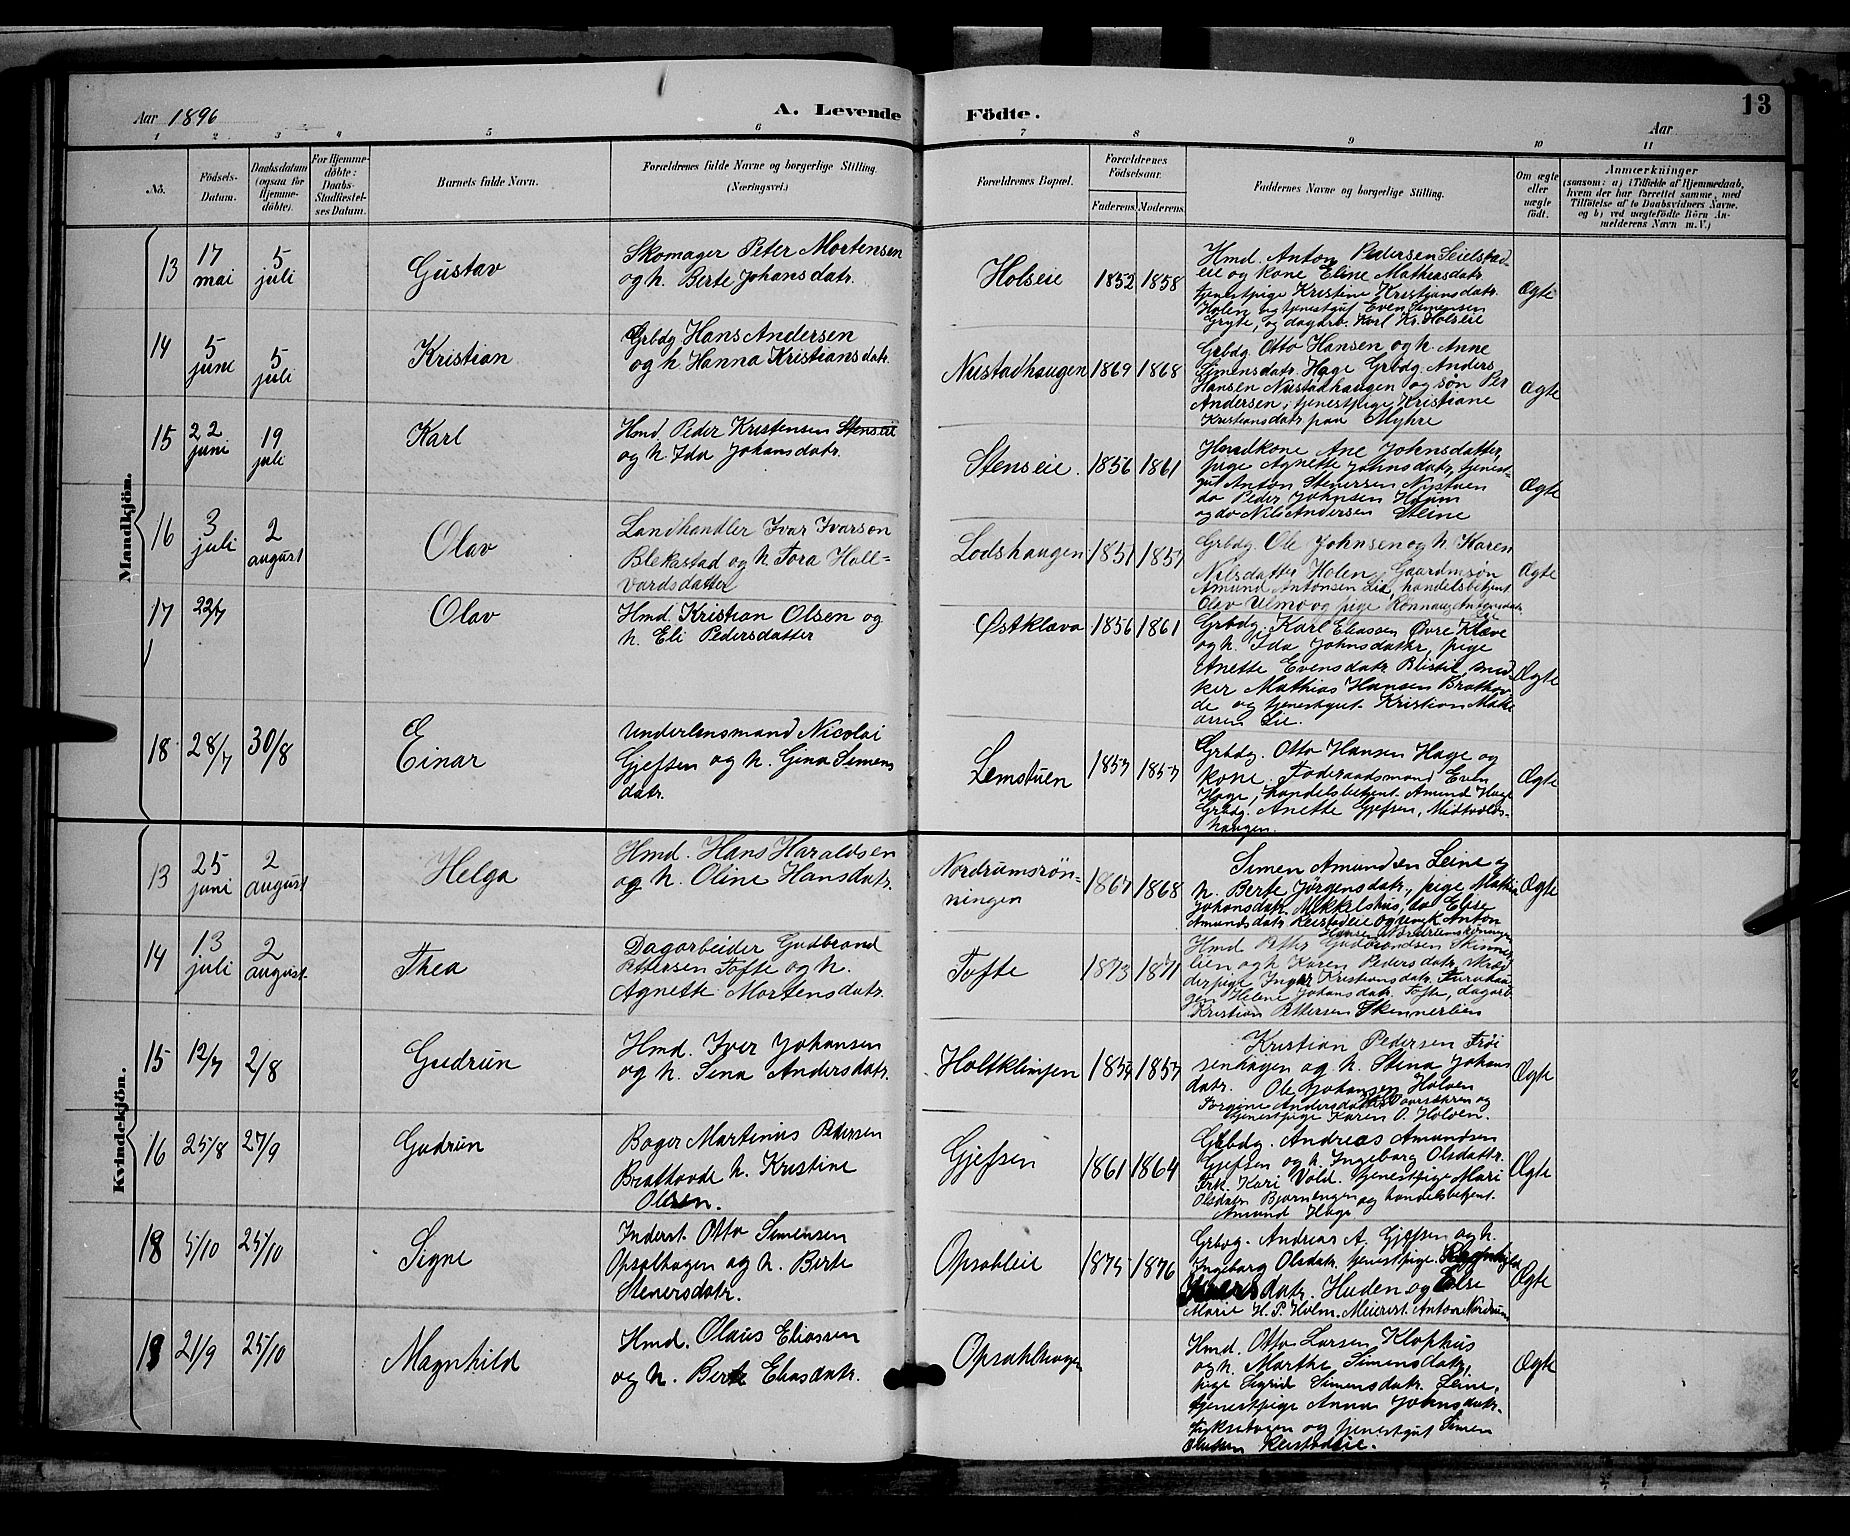 Aar 1896
A. Levende Födte.
13
Aar
1 2 3 4 5 6 7 8 9 10 11
No.
Födsels-Datum.
Daabsdatum (ogsaa for Hjemme-döbte).
For Hjemme-döbte: Daabs-Stadfæstel-ses Datum.
Barnets fulde Navn.
Forældrenes fulde Navne og borgerlige Stilling. (Næringsvei.)
Forældrenes Bopæl.
Forældrenes Födselsaar.
Faderens. Moderens.
Faddernes Navne og borgerlige Stilling.
Om ægte eller uægte födt.
Anmærkninger
(saasom: a) i Tilfælde af Hjemmedaab, hvem der har forrettet samme, med Tilföielse af to Daabsvidners Navne, og b) ved uægtefödte Börn An-melderens Navn m. V.)
Mandkjön.
13 17 mai 5 juli Gustav
Skomager Peter Mortensen
og h. Berte Johansdatr.
Holseie 1852 1858
Hmd. Anton Pedersen Seielstad-
eie og kone Eline Mathiasdatr.
tjenestpige Kristine Kristiansdatr.
Holen og tjenestgut Even Simensen
Gryte, og dagarb. Karl Kr. Holseie
Ægte
14 5 juni 5 juli Kristian
Grbdg Hans Andersen
og h. Hanna Kristiansdatr.
Nustadhaugen 1869 1868
Grbdg. Otto Hansen og h. Anne
Simensdatr. Hage Grbdg. Anders
Hansen Nustadhaugen og søn Per
Andersen, tjenestpige Kristiane
Kristiansdatr paa Myhre
Ægte
15 22 juni 19 juli Karl
Hmd. Peder Kristensen Stenseie
og h. Ida Johansdatr.
Stenseie. 1856 1861
Husmkone Ane Johnsdatter,
pige Agnette Johnsdatr, tjenest-
gut Anton Stenersen Nystuen
do Peder Johnsen
og do Nils Andersen Steine
Ægte
16 3 juli 2 august Olav
Landhandler Ivar Ivarson
Blekastad og h. Tora Hall-
vardsdatter
Lodshaugen 1851 1857
Grbdg. Ole Johnsen og h. Karen
Nilsdatter Holen, Gaardmsøn
Amund Antonsen Lie, handelsbetjent
Olev Ulmo og pige Rønnaug Antonsdatr.
Ægte
17 22/7 Olav
Hmd. Kristian Olsen og
h. Eli Pedersdatter
Østkleva 1856 1861
Grbdg. Karl Eliassen Øvre Kleve
og h. Ida Johnsdattr, pige
Anette Evensdatr Blistie, sned
ker Mathias Hansen Brathov-
de og tjenestgut Kristian
Lie.
Ægte
18 28/7 30/8 Einar
Underlensmand Nicolai
Gjefsen og h. Gina Simens
datr.
Lemstuen 1857 1857
Grbdg. Otto Hansen Hage og
kone. Føderaadsmand Even
Hage, handelsbetjent. Amund Hage
Grbdg. Anette Gjefsen, Midtvolds-
haugen.
Ægte
Kvindekjön.
13 25 juni 2 august Helga
Hmd. Hans Haraldsen
og h. Oline Hansdatr.
Nordrumsrøn-
ningen 1867 1868
Simen Amundsen Leine og
h. Berte Jørgensdatr., pige Mathia
Johansdatr. Mikkelshus, do Elise
Amundsdatr Kerstadeie og ungk Anton
Hansen
Ægte
14 13 juli 2 august Thea
Dagarbeider Gudbrand
Pettersen Tofte og h.
Agnette Mortensdatr.
Tofte 1873 1871
Hmd Petter Gudbrandsen Skinner
lien og h Karen Pedersdatr. Skræd
derpige Inger Kristiansdatr. Furuhau
gen Helene Johansdatr. Tofte, dagarb
Kristian Pettersen Skinnerlien
15 12/7 2/8 Gudrun
Hmd. Iver Johansen
og h. Sina Andersdatr.
Holtklimpen 1857 1857
Kristian Pedersen Frøi
senhagen og h. Stina Johans
datr. Ole Johansen Holven
Torgine Andersdatter og
tjenestpige Karen O. Holven.
Ægte
16 25/8 27/9 Gudrun
Bager Martinus Pedersen
Brathovde h. Kristine
Olsen.
Gjefsen 1861 1864
Grbdg. Andreas Amundsen
Gjefsen og h. Ingeborg Olsdattr.
Frk. Kari Vold. tjenestpige Mari
Olsdaen Bjørnengen og handelsbetjent.
Amund Hage
Ægte
18 5/10 25/10 Signe
Inderst. Otto Simensen
Opsalhagen og h. Berte
Stenersdatr.
Opsahleie 1875 1876
Grbdg. Andreas A. Gjefsen og h.
Ingeborg Olsdatr. tjenestpige Ragnhild
Iversdatr. Huden og Else
Marie H. P. Holm. Meierist. Anton Nordrum
Ægte
19 21/9 25/10 Magnhild
Hmd. Olaus Eliassen
og h. Berte Eliasdatr.
Opsahlhagen
Hmd. Otto Larsen Klophus
og h. Marthe Simensdatr,
pige Sigrid Simensdatr. Leine,
tjenestpige Anna Johnsdatr.
og tjenestgut Simen
Olausen Kerstadeie.
Ægte